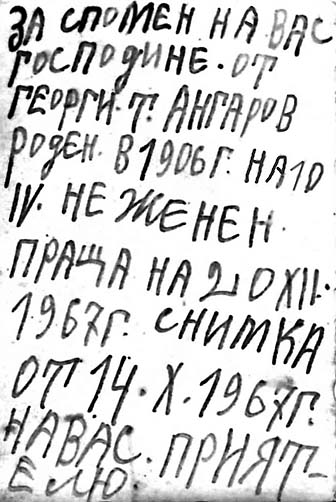 ЗА СПОМЕН НА ВАС
ГОСПОДИНЕ. ОТ
ГЕОРГИ. Т. АНГАРОВ
РОДЕН. В 1906 Г. НА 10
IV. НЕ ЖЕНЕН.
ПРАЩА НА 20 XII.
1967 Г. СНИМКА
ОТ 14. X. 1967 Г.
НАВАС. ПРИЯТ-
ЕЛЮ.